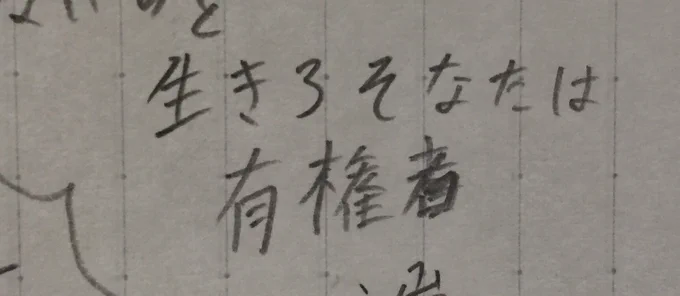 と
生きろそなたは
有権者